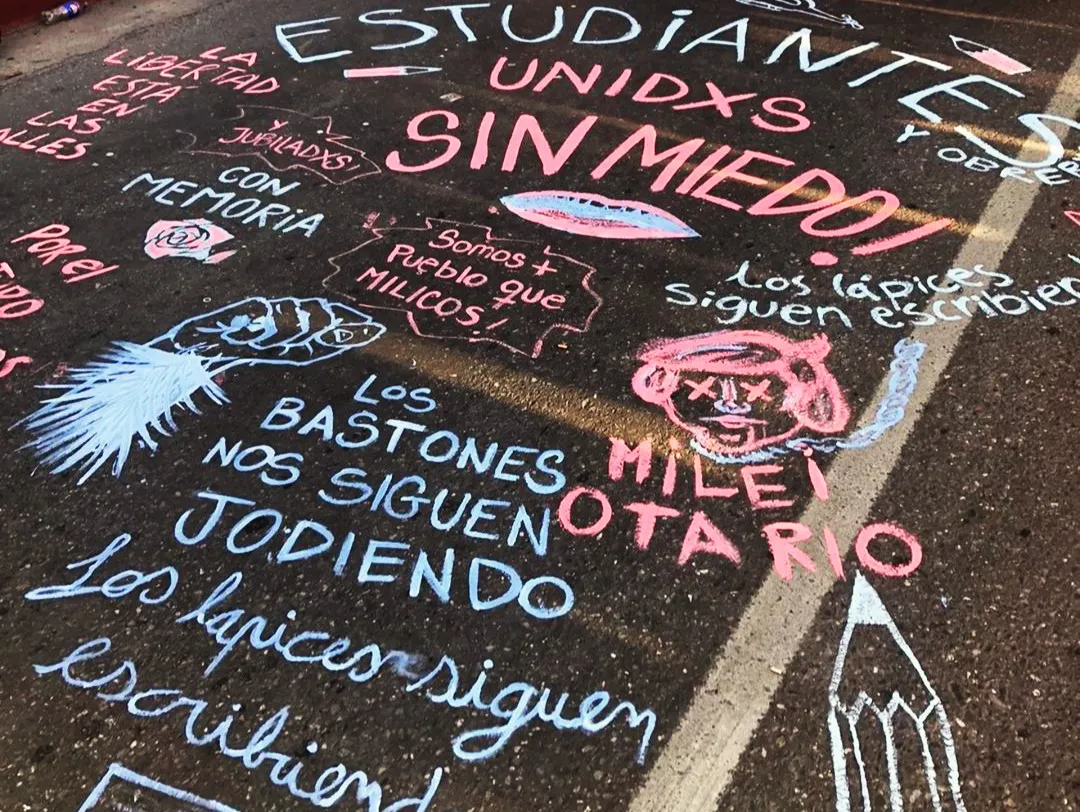 ESTUDiANTES
UNIDXS
SIN MIEDO!
Y OBRER
LA
LiBERTAD
ESTÁ
EN
LAS
ALLES
Y
JUBILADXS!
CON
MEMORiA
POR El
Somos +
Pueblo que
MILICOS!
Los lápices
siguen escribien
MiLEi
OTARIO
Los
BASTONES
NOS SIGUEN
JODIENDO
Los lapices siguen
escribiend